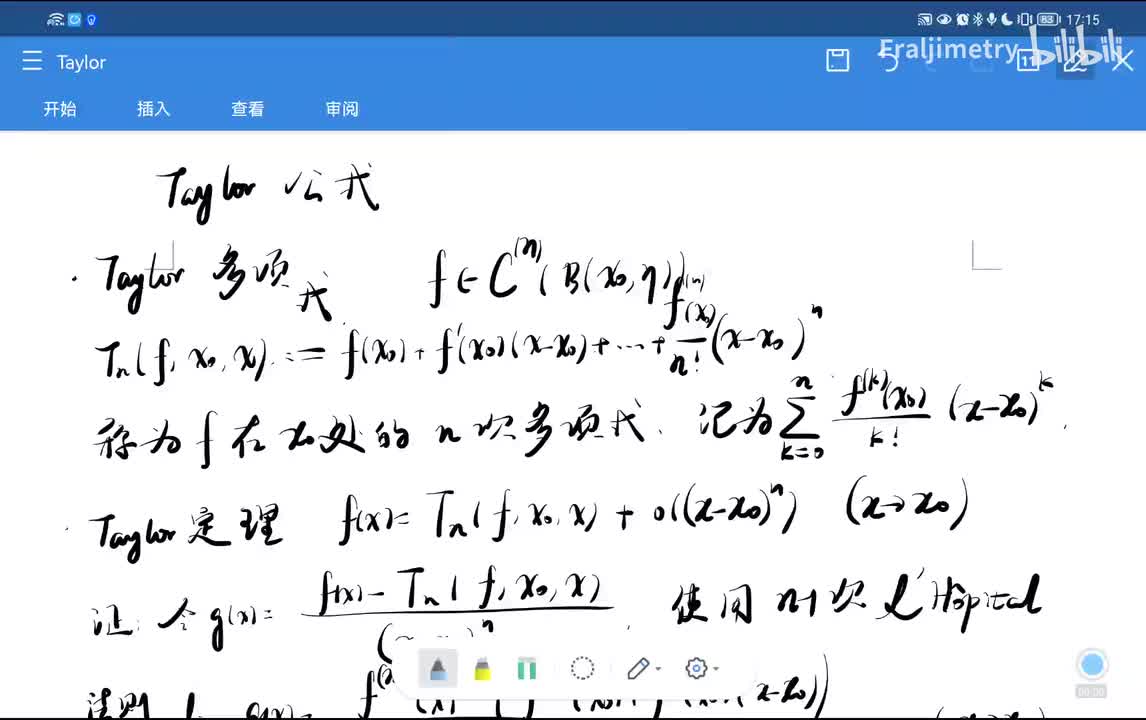 83 17:15
Taylor
Eraljimetry bilibili
11
开始 插入 查看 审阅
Taylor 公式
· Taylor 多项式 f∈C^(n)(B(x₀,η))
Tₙ(f, x₀, x) := f(x₀) + f'(x₀)(x-x₀) + ... + f^(n)(x₀)/n! (x-x₀)^n
称为 f 在 x₀ 处的 n 次多项式. 记为 ∑_{k=0}^{n} f^(k)(x₀)/k! (x-x₀)^k.
· Taylor 定理 f(x) = Tₙ(f, x₀, x) + o((x-x₀)^n) (x→x₀)
证: 令 g(x) = f(x) - Tₙ(f, x₀, x) / ( )^n . 使用 n-1 次 L'Hôpital
法则 g(x) =
00:00